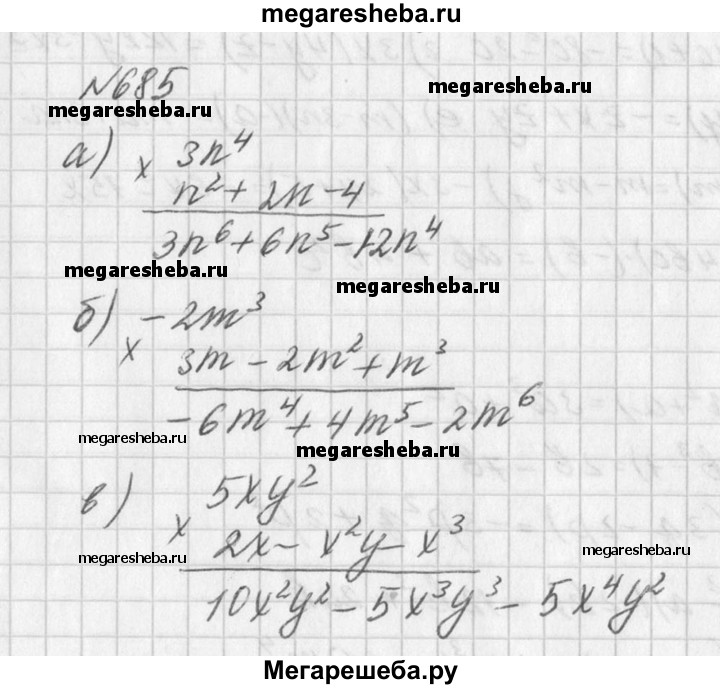 megaresheba.ru
№685
megaresheba.ru
megaresheba.ru
а) × 3n⁴
n² + 2n - 4
3n⁶ + 6n⁵ - 12n⁴
megaresheba.ru
megaresheba.ru
б) × - 2m³
3m - 2m² + m³
- 6m⁴ + 4m⁵ - 2m⁶
megaresheba.ru
megaresheba.ru
в) × 5xy²
2x - x²y - x³
megaresheba.ru
megaresheba.ru
10x²y² - 5x³y³ - 5x⁴y²
Мегарешеба.ру